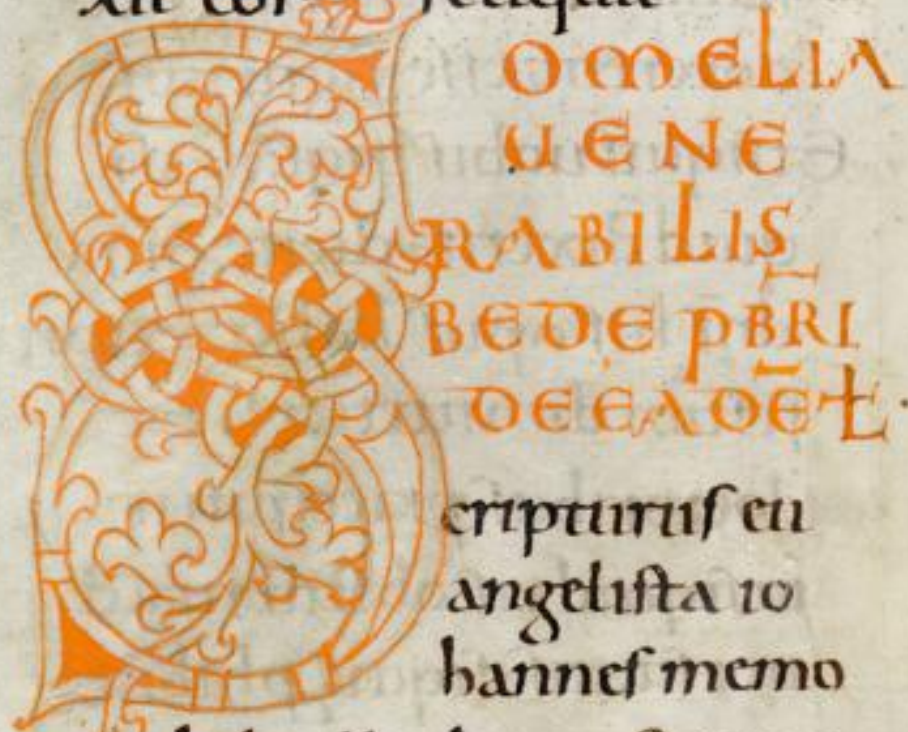 OMELIA
UENE
RABILIS
BEDE PB̄RI
DE EADĒ Ł·
Scripturuſ eu
angeliſta io
hanneſ memo